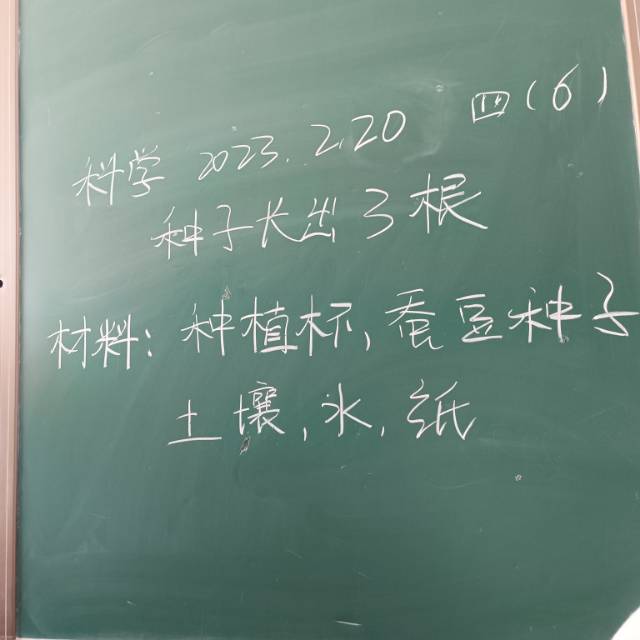 科学 2023.2.20 四(6)
种子长出了根
材料:种植杯,蚕豆种子
土壤,水,纸